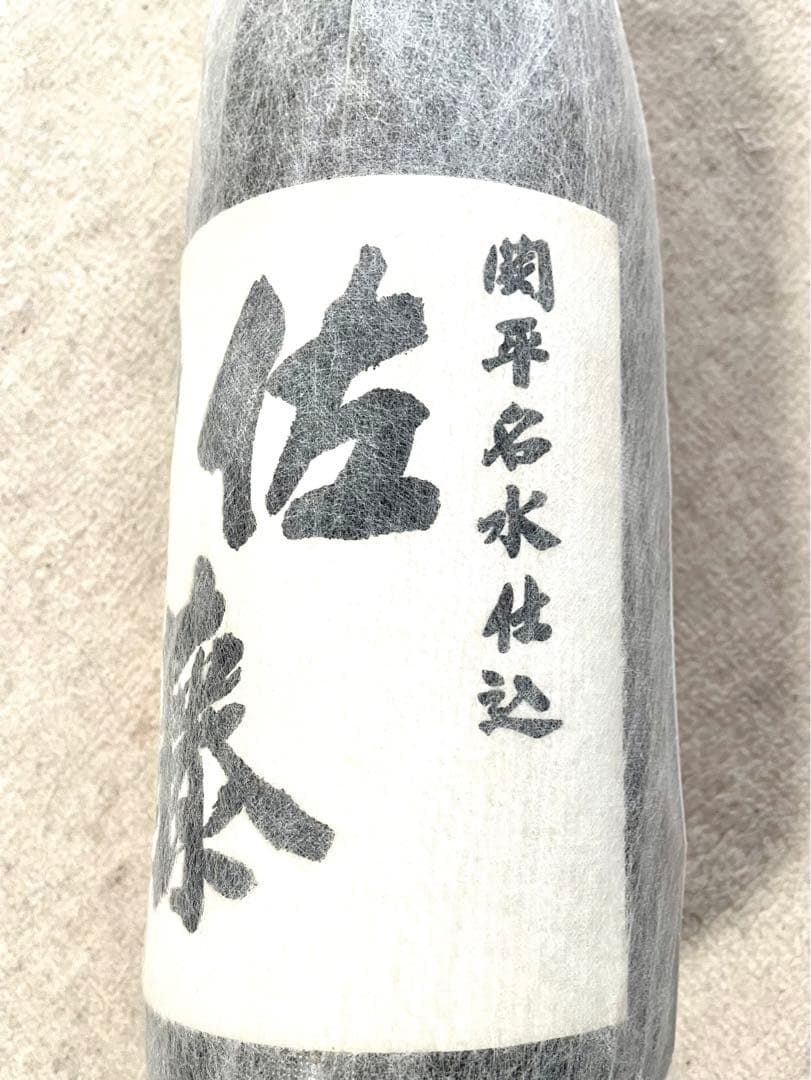 関平名水仕込
佐藤